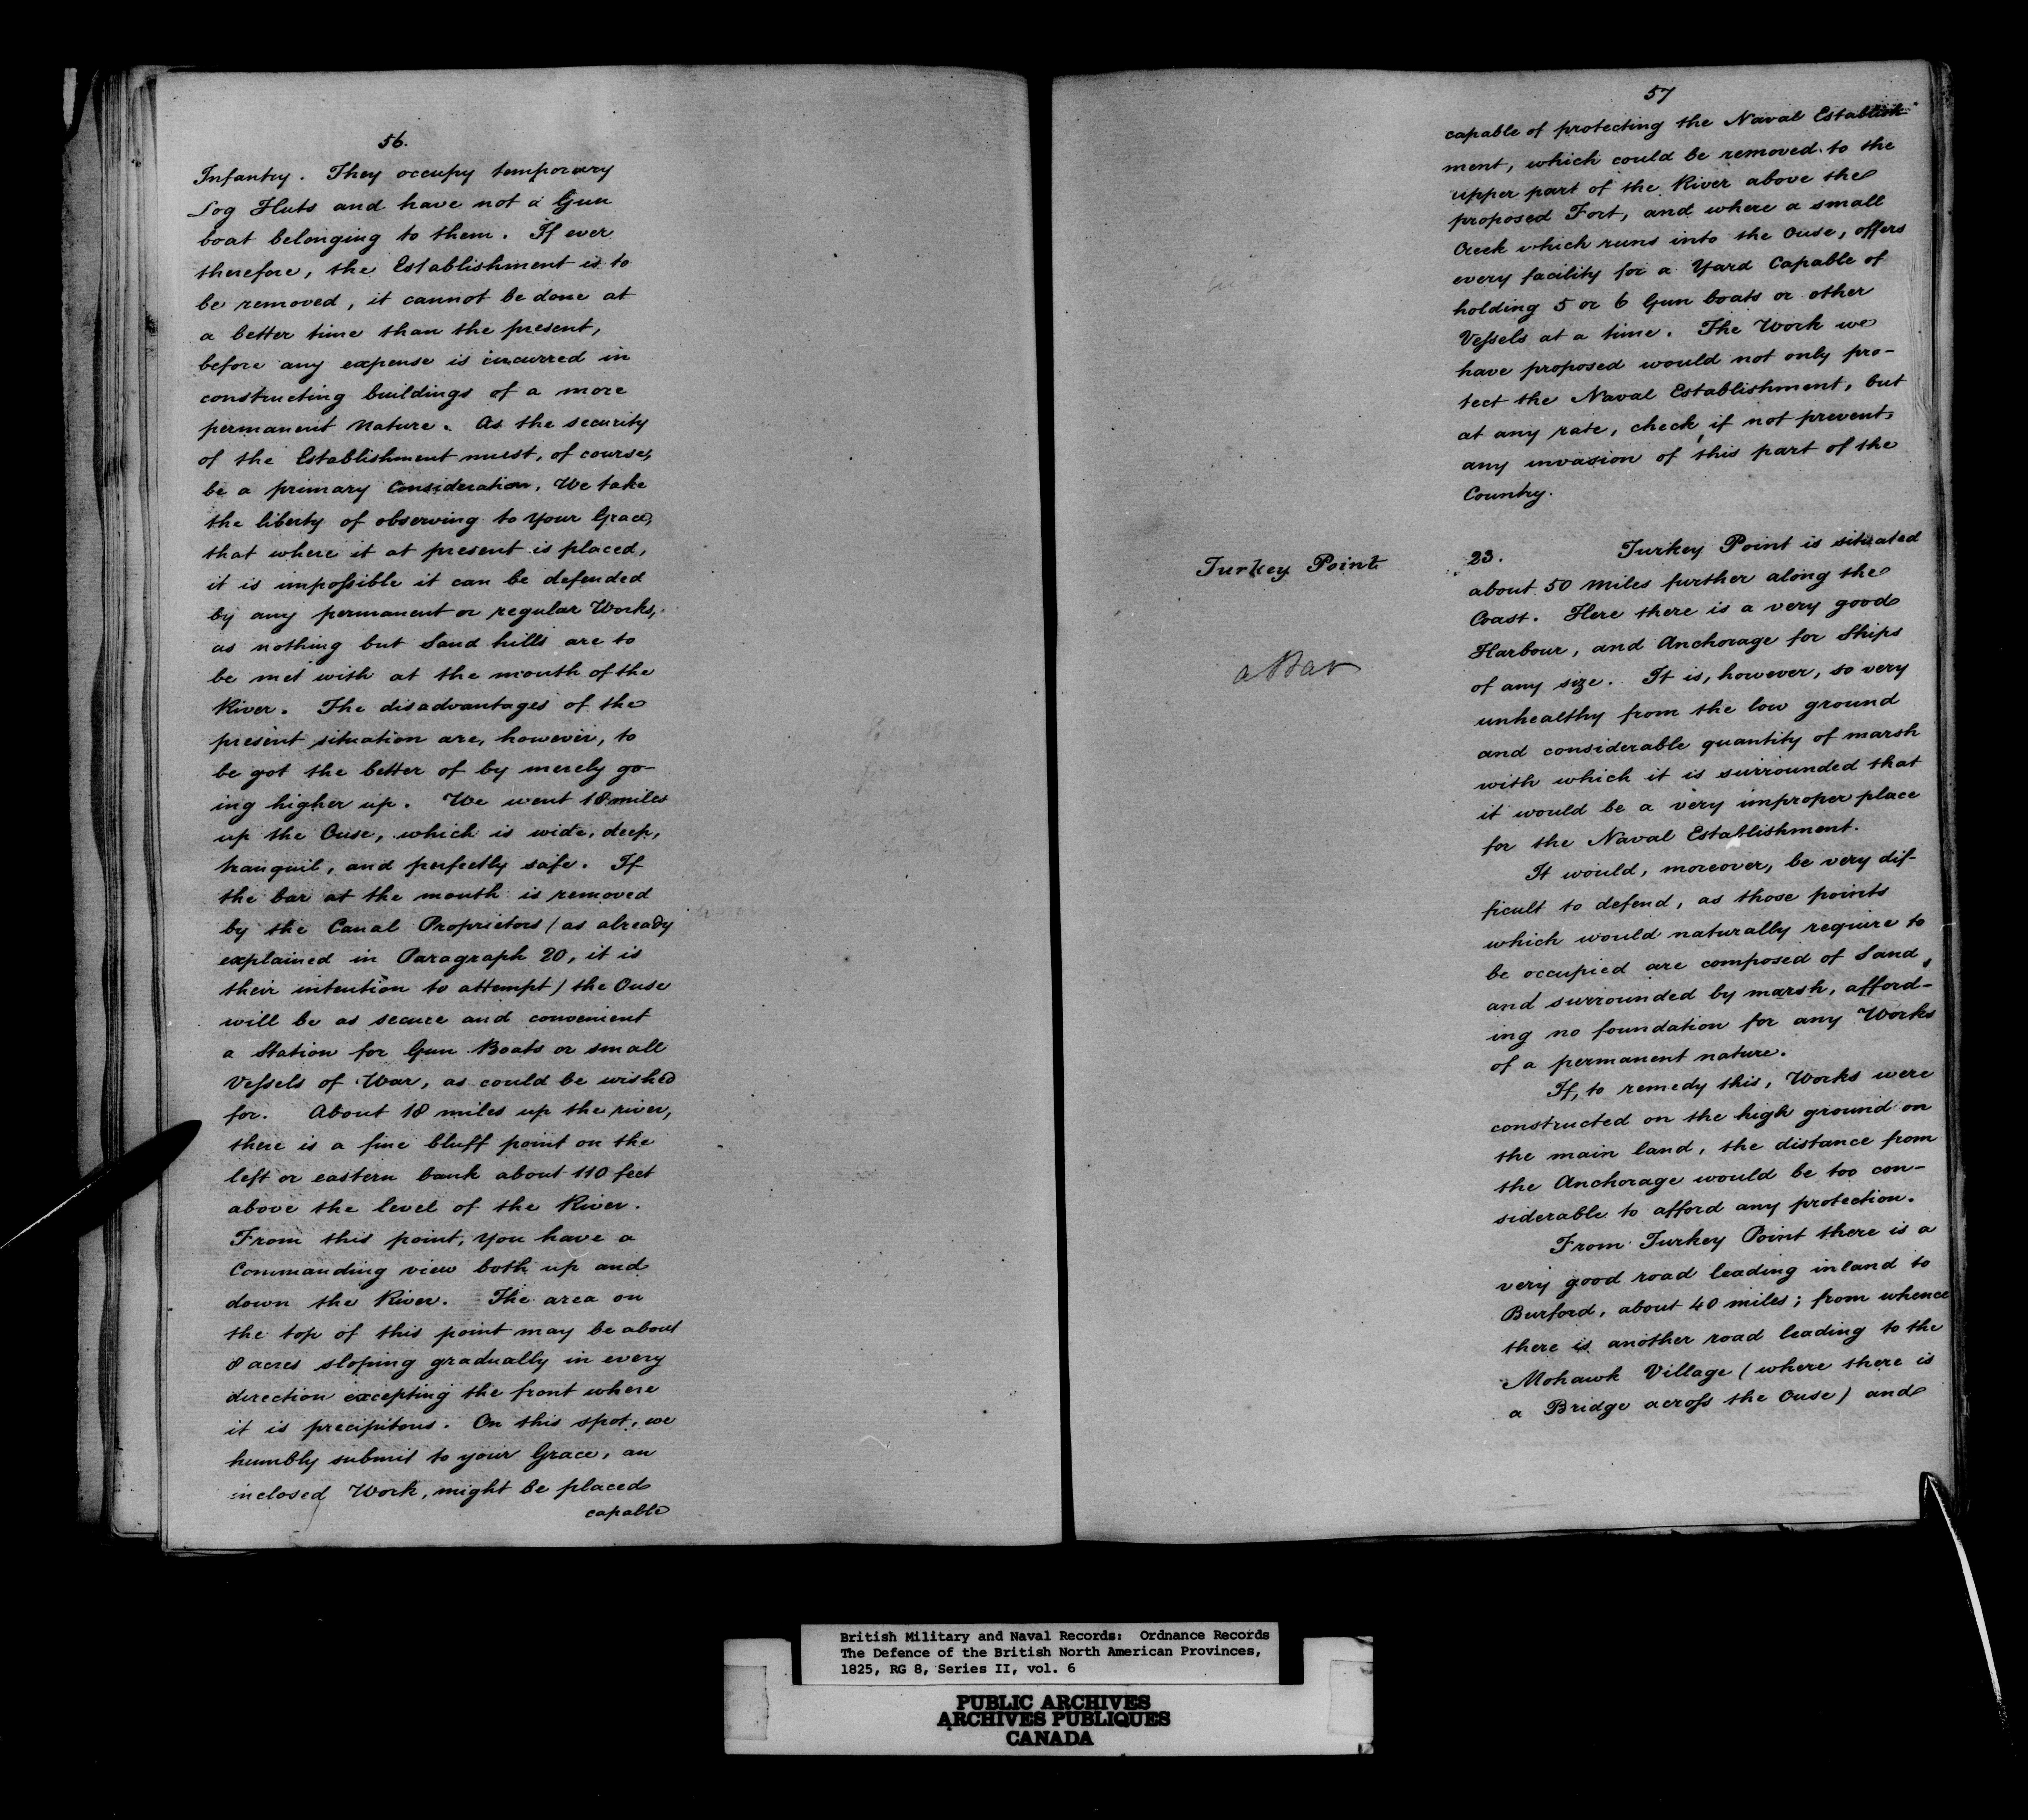 56.
Infantry. They occupy temporary
Log Huts and have not a Gun
boat belonging to them. If ever
therefore, the Establishment is to
be removed, it cannot be done at
a better time than the present,
before any expense is incurred in
constructing buildings of a more
permanent nature. As the security
of the Establishment must, of course,
be a primary Consideration, We take
the liberty of observing to Your Grace,
that where it at present is placed,
it is impossible it can be defended
by any permanent or regular Works,
as nothing but Sand hills are to
be met with at the mouth of the
River. The disadvantages of the
present situation are, however, to
be got the better of by merely go-
ing higher up. We went 18 miles
up the Ouse, which is wide, deep,
tranquil, and perfectly safe. If
the bar at the mouth is removed
by the Canal Proprietors (as already
explained in Paragraph 20, it is
their intention to attempt) the Ouse
will be as secure and convenient
a Station for Gun Boats or small
Vessels of War, as could be wished
for. About 18 miles up the river,
there is a fine bluff point on the
left or eastern bank about 110 feet
above the level of the River.
From this point, You have a
Commanding view both up and
down the River. The area on
the top of this point may be about
8 acres sloping gradually in every
direction excepting the front where
it is precipitous. On this spot, we
humbly submit to your Grace, an
inclosed Work, might be placed
capable
57
capable of protecting the Naval Establish-
ment, which could be removed to the
upper part of the River above the
proposed Fort, and where a small
Creek which runs into the Ouse, offers
every facility for a Yard Capable of
holding 5 or 6 Gun boats or other
Vessels at a time. The Work we
have proposed would not only pro-
tect the Naval Establishment, but
at any rate, check, if not prevent,
any invasion of this part of the
Country.
Turkey Point
23. Turkey Point is situated
about 50 Miles further along the
Coast. Here there is a very good
Harbour, and Anchorage for Ships
a Bar
of any size. It is, however, so very
unhealthy from the low ground
and considerable quantity of marsh
with which it is surrounded that
it would be a very improper place
for the Naval Establishment.
It would, moreover, be very dif-
ficult to defend, as those points
which would naturally require to
be occupied are composed of Sand,
and surrounded by marsh, afford-
ing no foundation for any Works
of a permanent nature.
If, to remedy this, Works were
constructed on the high ground on
the main land, the distance from
the Anchorage would be too con-
siderable to afford any protection.
From Turkey Point there is a
very good road leading inland to
Burford, about 40 miles; from whence
there is another road leading to the
Mohawk Village (where there is
a Bridge across the Ouse) and
British Military and Naval Records: Ordnance Records
The Defence of the British North American Provinces,
1825, RG 8, Series II, vol. 6
PUBLIC ARCHIVES
ARCHIVES PUBLIQUES
CANADA